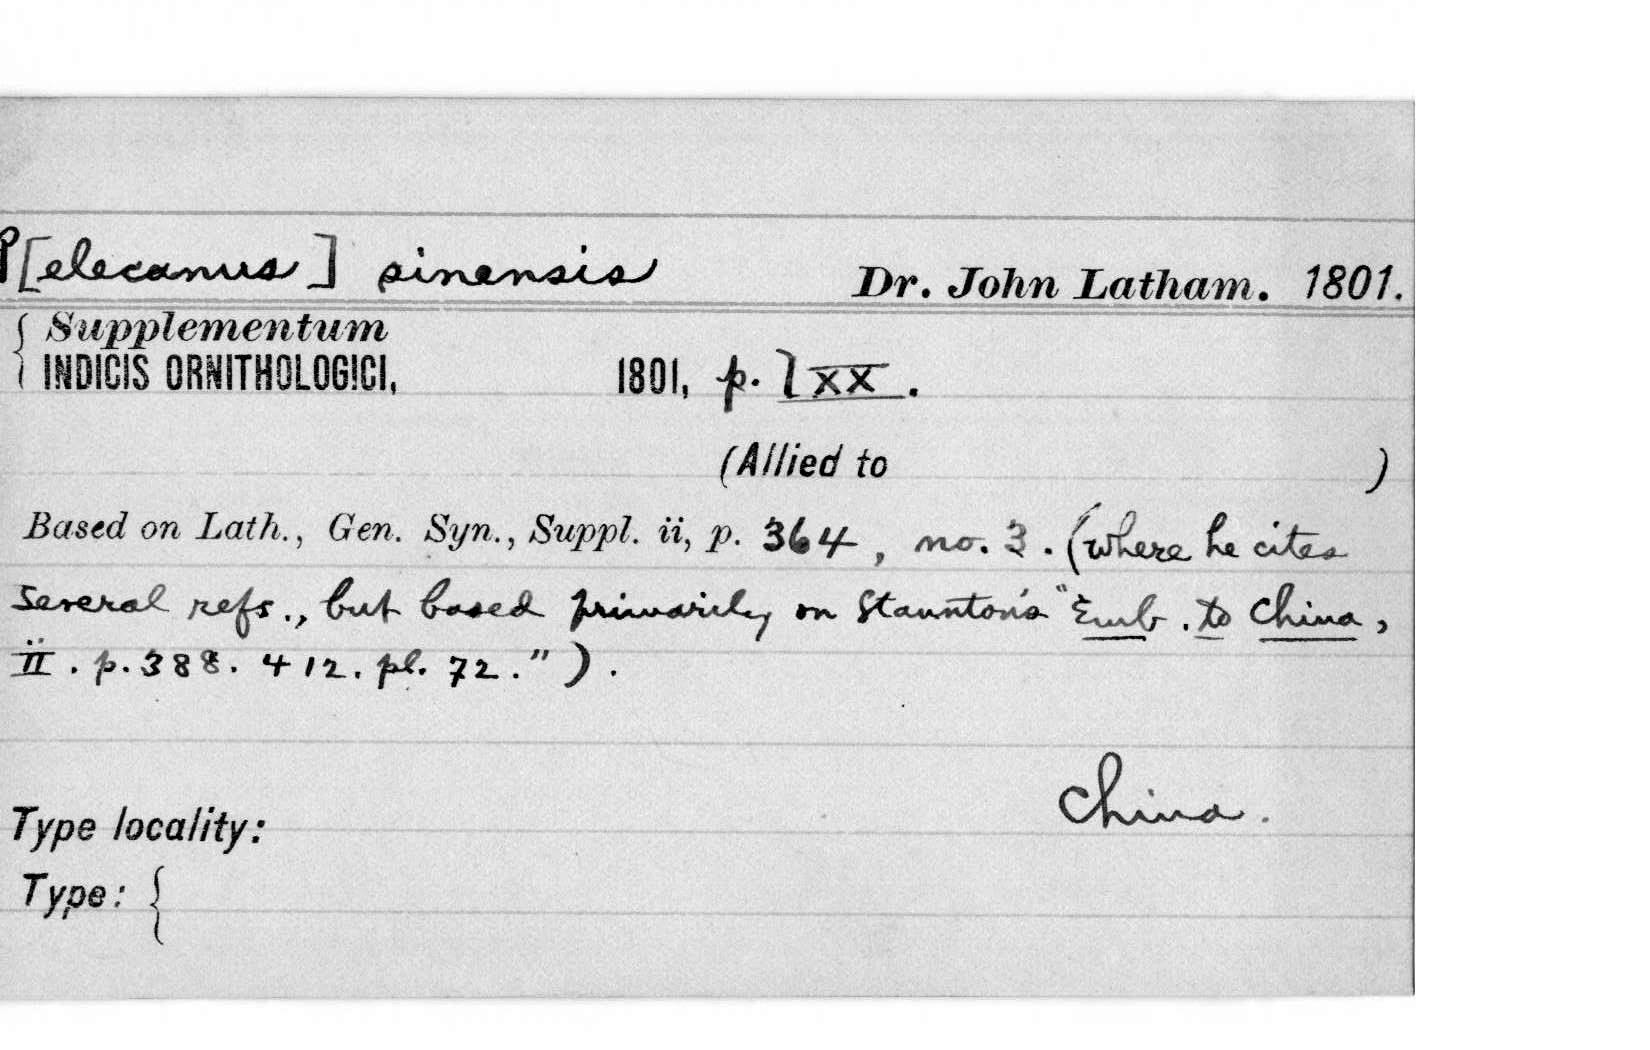 P[elecanus] sinensis Dr. John Latham. 1801.
{ Supplementum
INDICIS ORNITHOLOGICI, 1801, p. lxx.
(Allied to )
Based on Lath., Gen. Syn., Suppl. ii, p. 364, no. 3. (where he cites
several refs., but based primarily on Staunton's "Emb. to China,
II. p. 388. 412. pl. 72.").
China.
Type locality:
Type: {